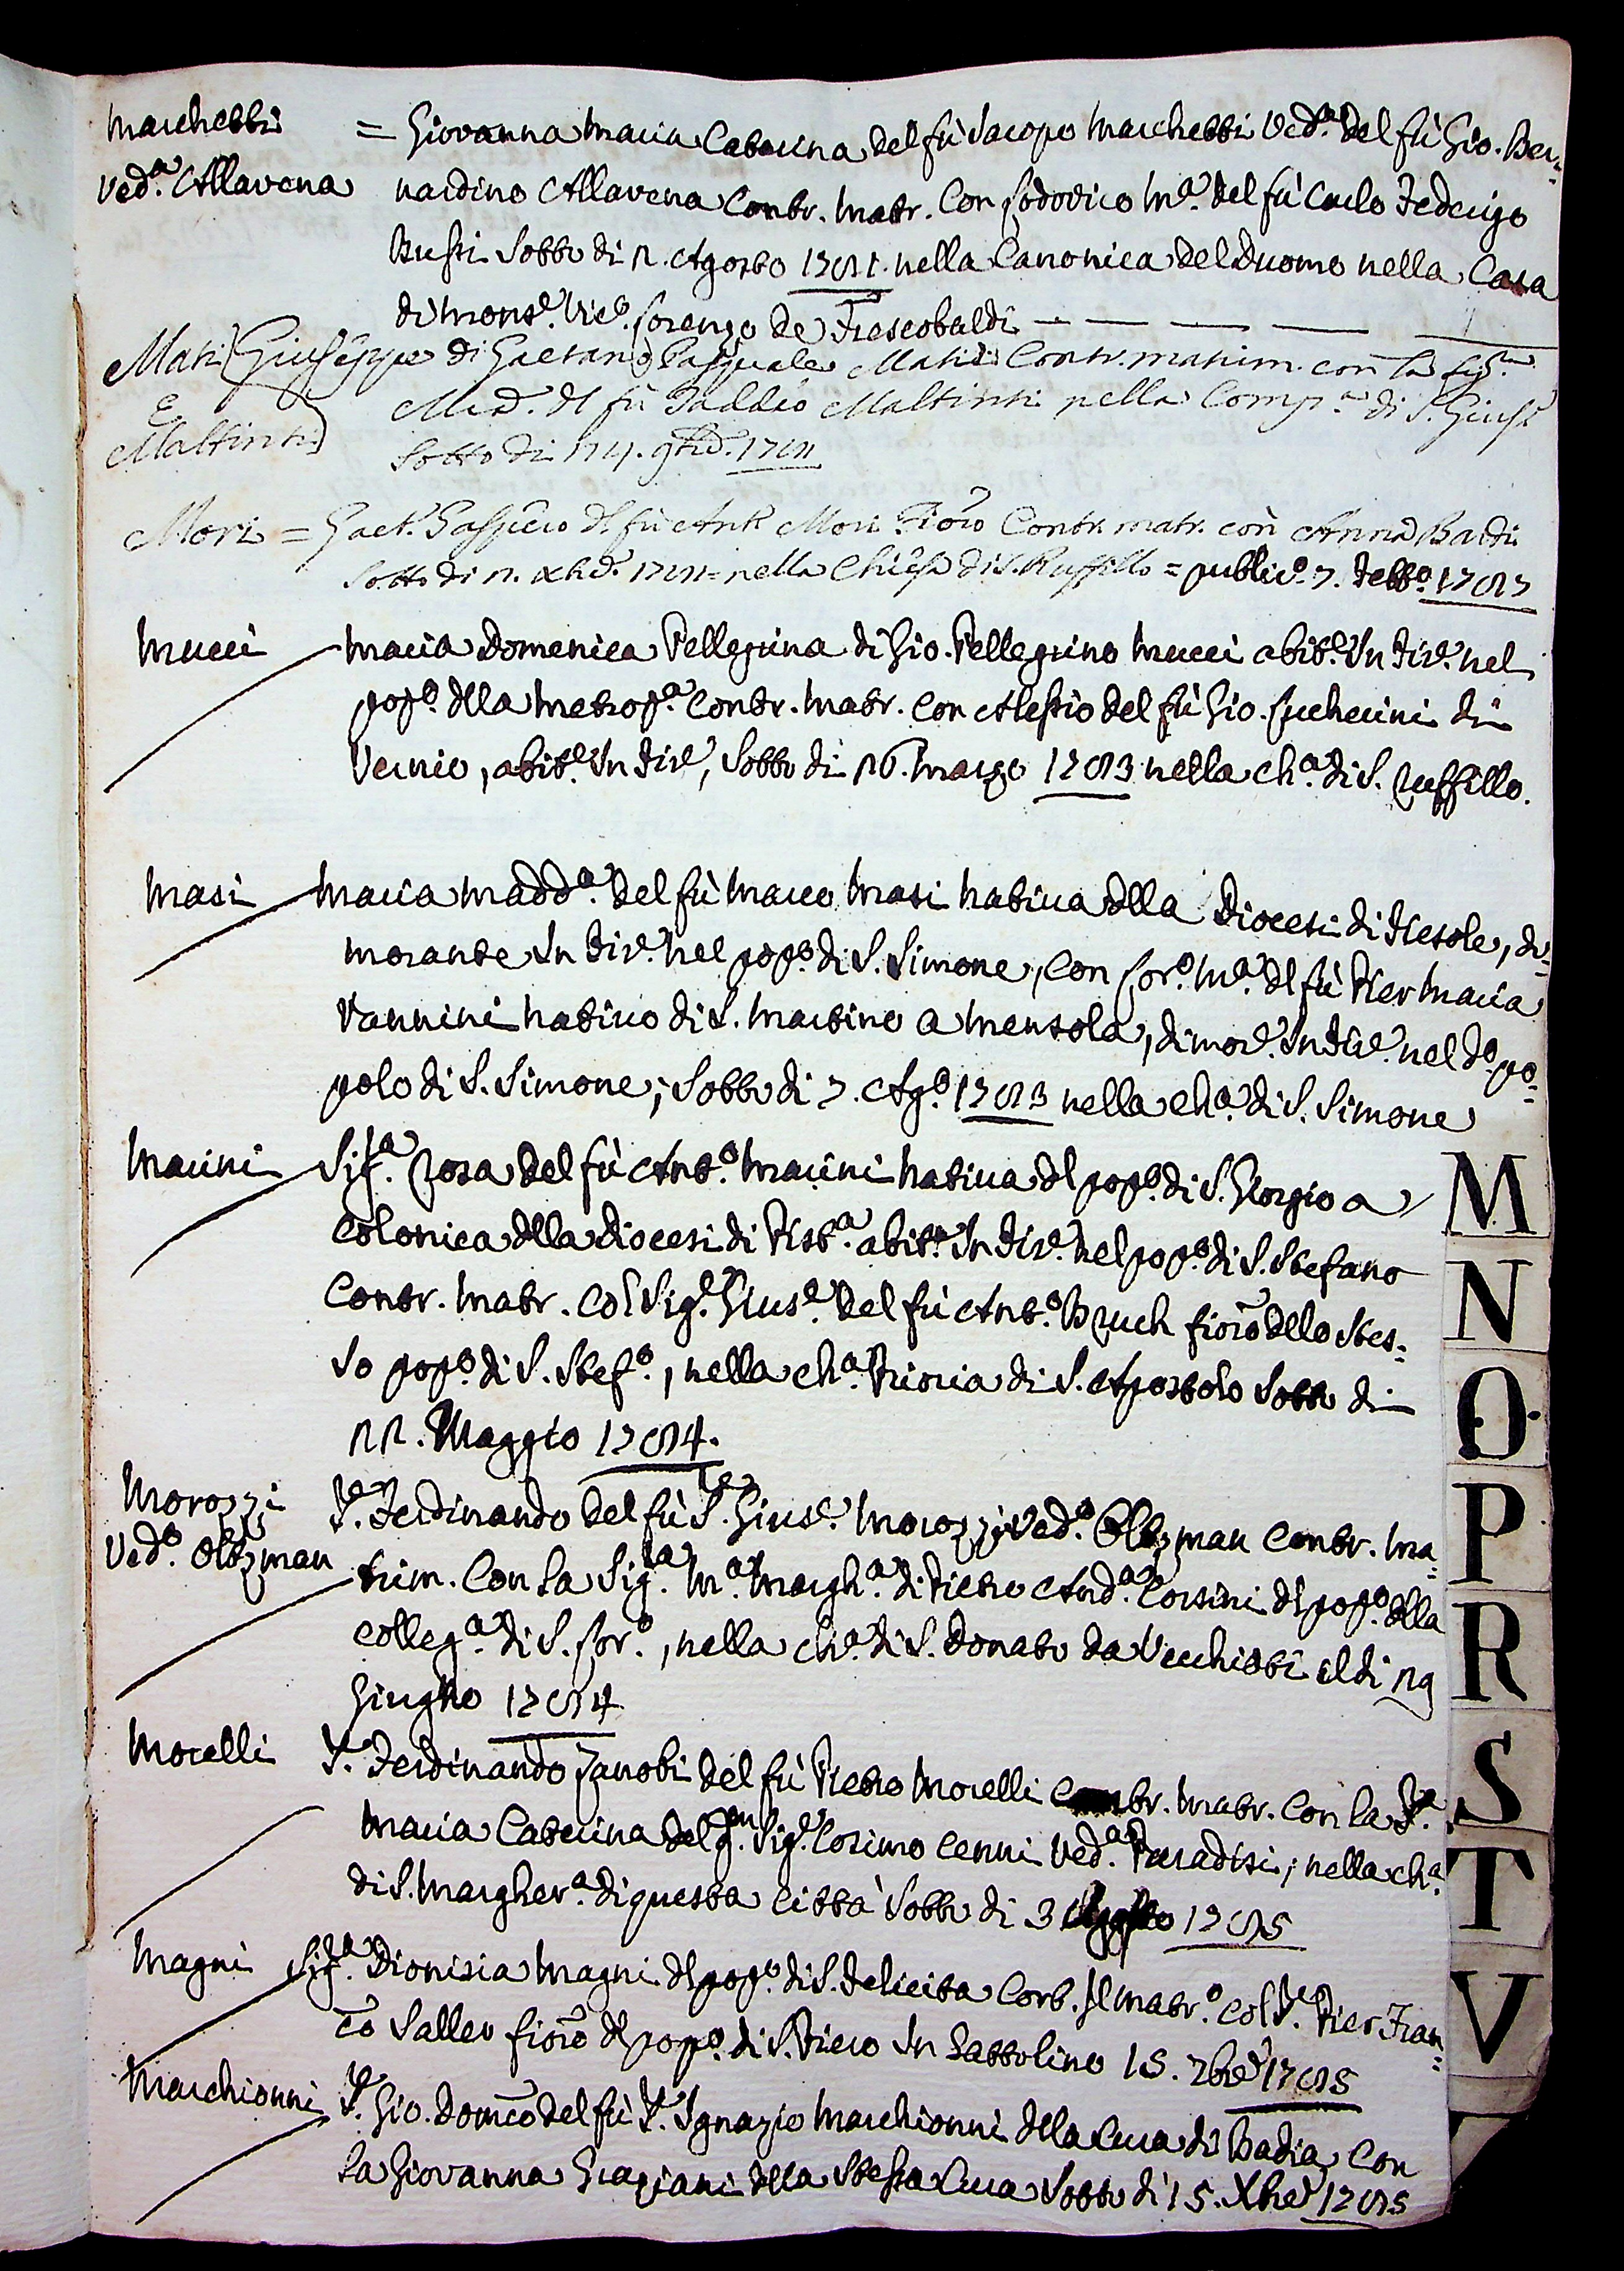 Marchetti = Giovanna Maria Caterina del fù Jacopo Marchetti Ved.ª del fù Gio. Ber=
Ved.ª Allavena nardino Allavena Contr. Matr. Con Lodovico M.ª del fù Carlo Federigo
Busti Sotto di Agosto nella Canonica del Duomo nella Casa
di Mons.e Vic.o Lorenzo de Frescobaldi
Mati Giuseppe di Gaetano Pasquale Mati Contr. matrim. con la Sig.ra
E Mad. dl fù Taddeo Maltinti nella Comp.a di S. Gius.e
Maltinti Sotto di
Mori = Gaet. Gaspero dl fù Ant. Mori Fior.o Contr. matr. con Anna Bardi
Sotto di nella Chiesa di S. Ruffillo = public.o 7. Febb.o
Mucci Maria Domenica Pellegrina di Gio. Pellegrino Mucci abit.e In Fir.e nel
pop.o dlla Metrop.a Contr. Matr. Con Alessio del fù Gio. Luccherini di
Vernio, abit.e In Fir.e, Sotto di Marzo nella Ch.a di S. Ruffillo.
Masi Maria Madd.a del fù Marco Masi Nativa dlla Diocesi di Fiesole, di=
morante In Fir.e nel pop.o di S. Simone, Con Lor.o M.a dl fù Pier Maria
Vannini nativo di S. Martino a Mensola, dimor.e In Fir.e nel d.o po=
polo di S. Simone; Sotto di 7. Ag.o nella Ch.a di S. Simone
Marini Sig.a Rosa del fù Ant.o Marini Nativa dl pop.o di S. Giorgio a
Colonica dlla Diocesi di Pist.a abit.e In Fir.e nel pop.o di S. Stefano
Contr. Matr. Col Sig.e Gius.e del fù Ant.o Bruch fior.o dello Stes=
so pop.o di S. Stef.o, nella Ch.a Prioria di S. Apostolo Sotto di
Maggio
Morozzi S.r Ferdinando del fù S.r Gius.e Morozzi Ved.o Oltzman Contr. Ma=
Ved.o Oltzman trim. Con la Sig.ra M.a Margh.a di Pietro And.a Corsini dl pop.o dlla
Colleg.a di S. Lor.o, nella Ch.a di S. Donato da Vecchietti il di
Giugno
Morelli S.r Ferdinando Zanobi del fù Pietro Morelli Contr. Matr. Con la S.ra
Maria Caterina del Sig.e Cosimo Cenni Ved.a Paradisi; nella Ch.a
di S. Margher.a di questa Città Sotto di 3
Magni Sig.ra Dionisia Magni dl pop.o di S. Felicita Cont. Il Matr.o Col S.r Pier Fran=
co Salleu fior.o dl pop.o di S. Piero In Gattolino 15. 7bre
Marchionni S.r Gio. Dom.co del fù S.r Ignazio Marchionni dlla Cura di Badia Con
la Giovanna Graziani della Stessa Cura Sotto di 15. Xbre
M
N
O
P
R
S
T
V